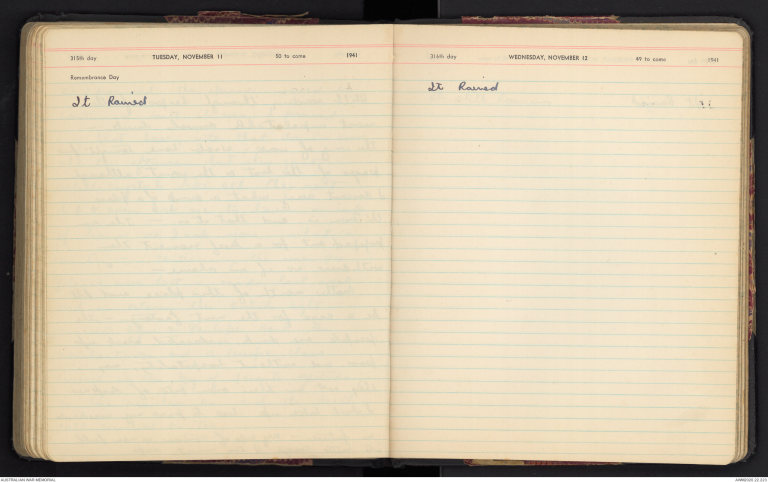 315th day TUESDAY, NOVEMBER 11 50 to come 1941
Remembrance Day
It Rained
316th day WEDNESDAY, NOVEMBER 12 49 to come 1941
It Rained
AUSTRALIAN WAR MEMORIAL